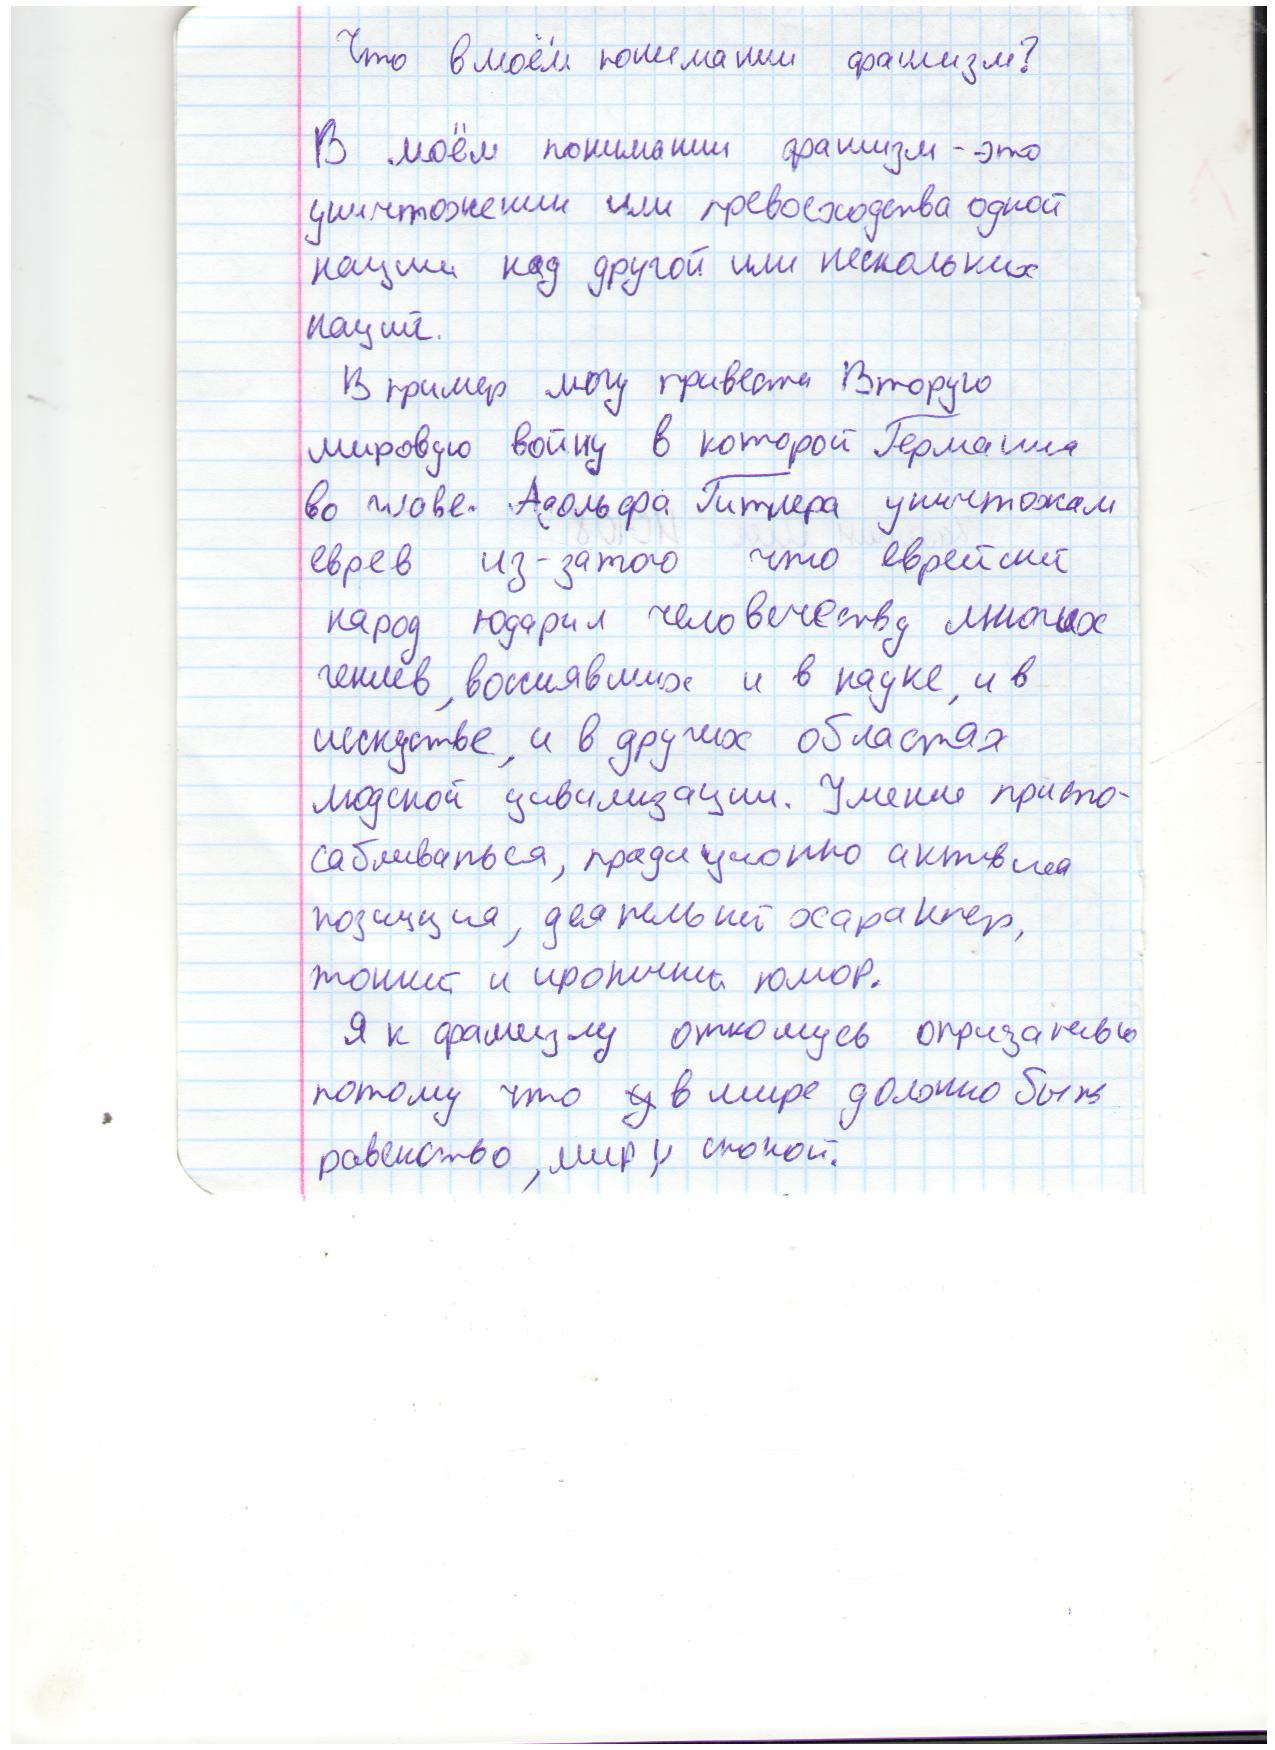 Что в моём понимании фашизм?
В моём понимании фашизм - это
уничтожении или превосходства одной
нации над другой или нескольких
наций.
В пример могу привести Вторую
мировую войну в которой Германия
во главе Адольфа Гитлера уничтожал
еврев из-затого что еврейский
народ подарил человечеству многих
гениев, воссиявших и в науке, и в
искустве, и в других областях
людской цивилизации. Умение приспо-
сабливаться, традиционно активная
позиция, деятельный характер,
тонкий и ироничный юмор.
Я к фашизму
потому что в мире должно быть
равенство, мир и спокой.